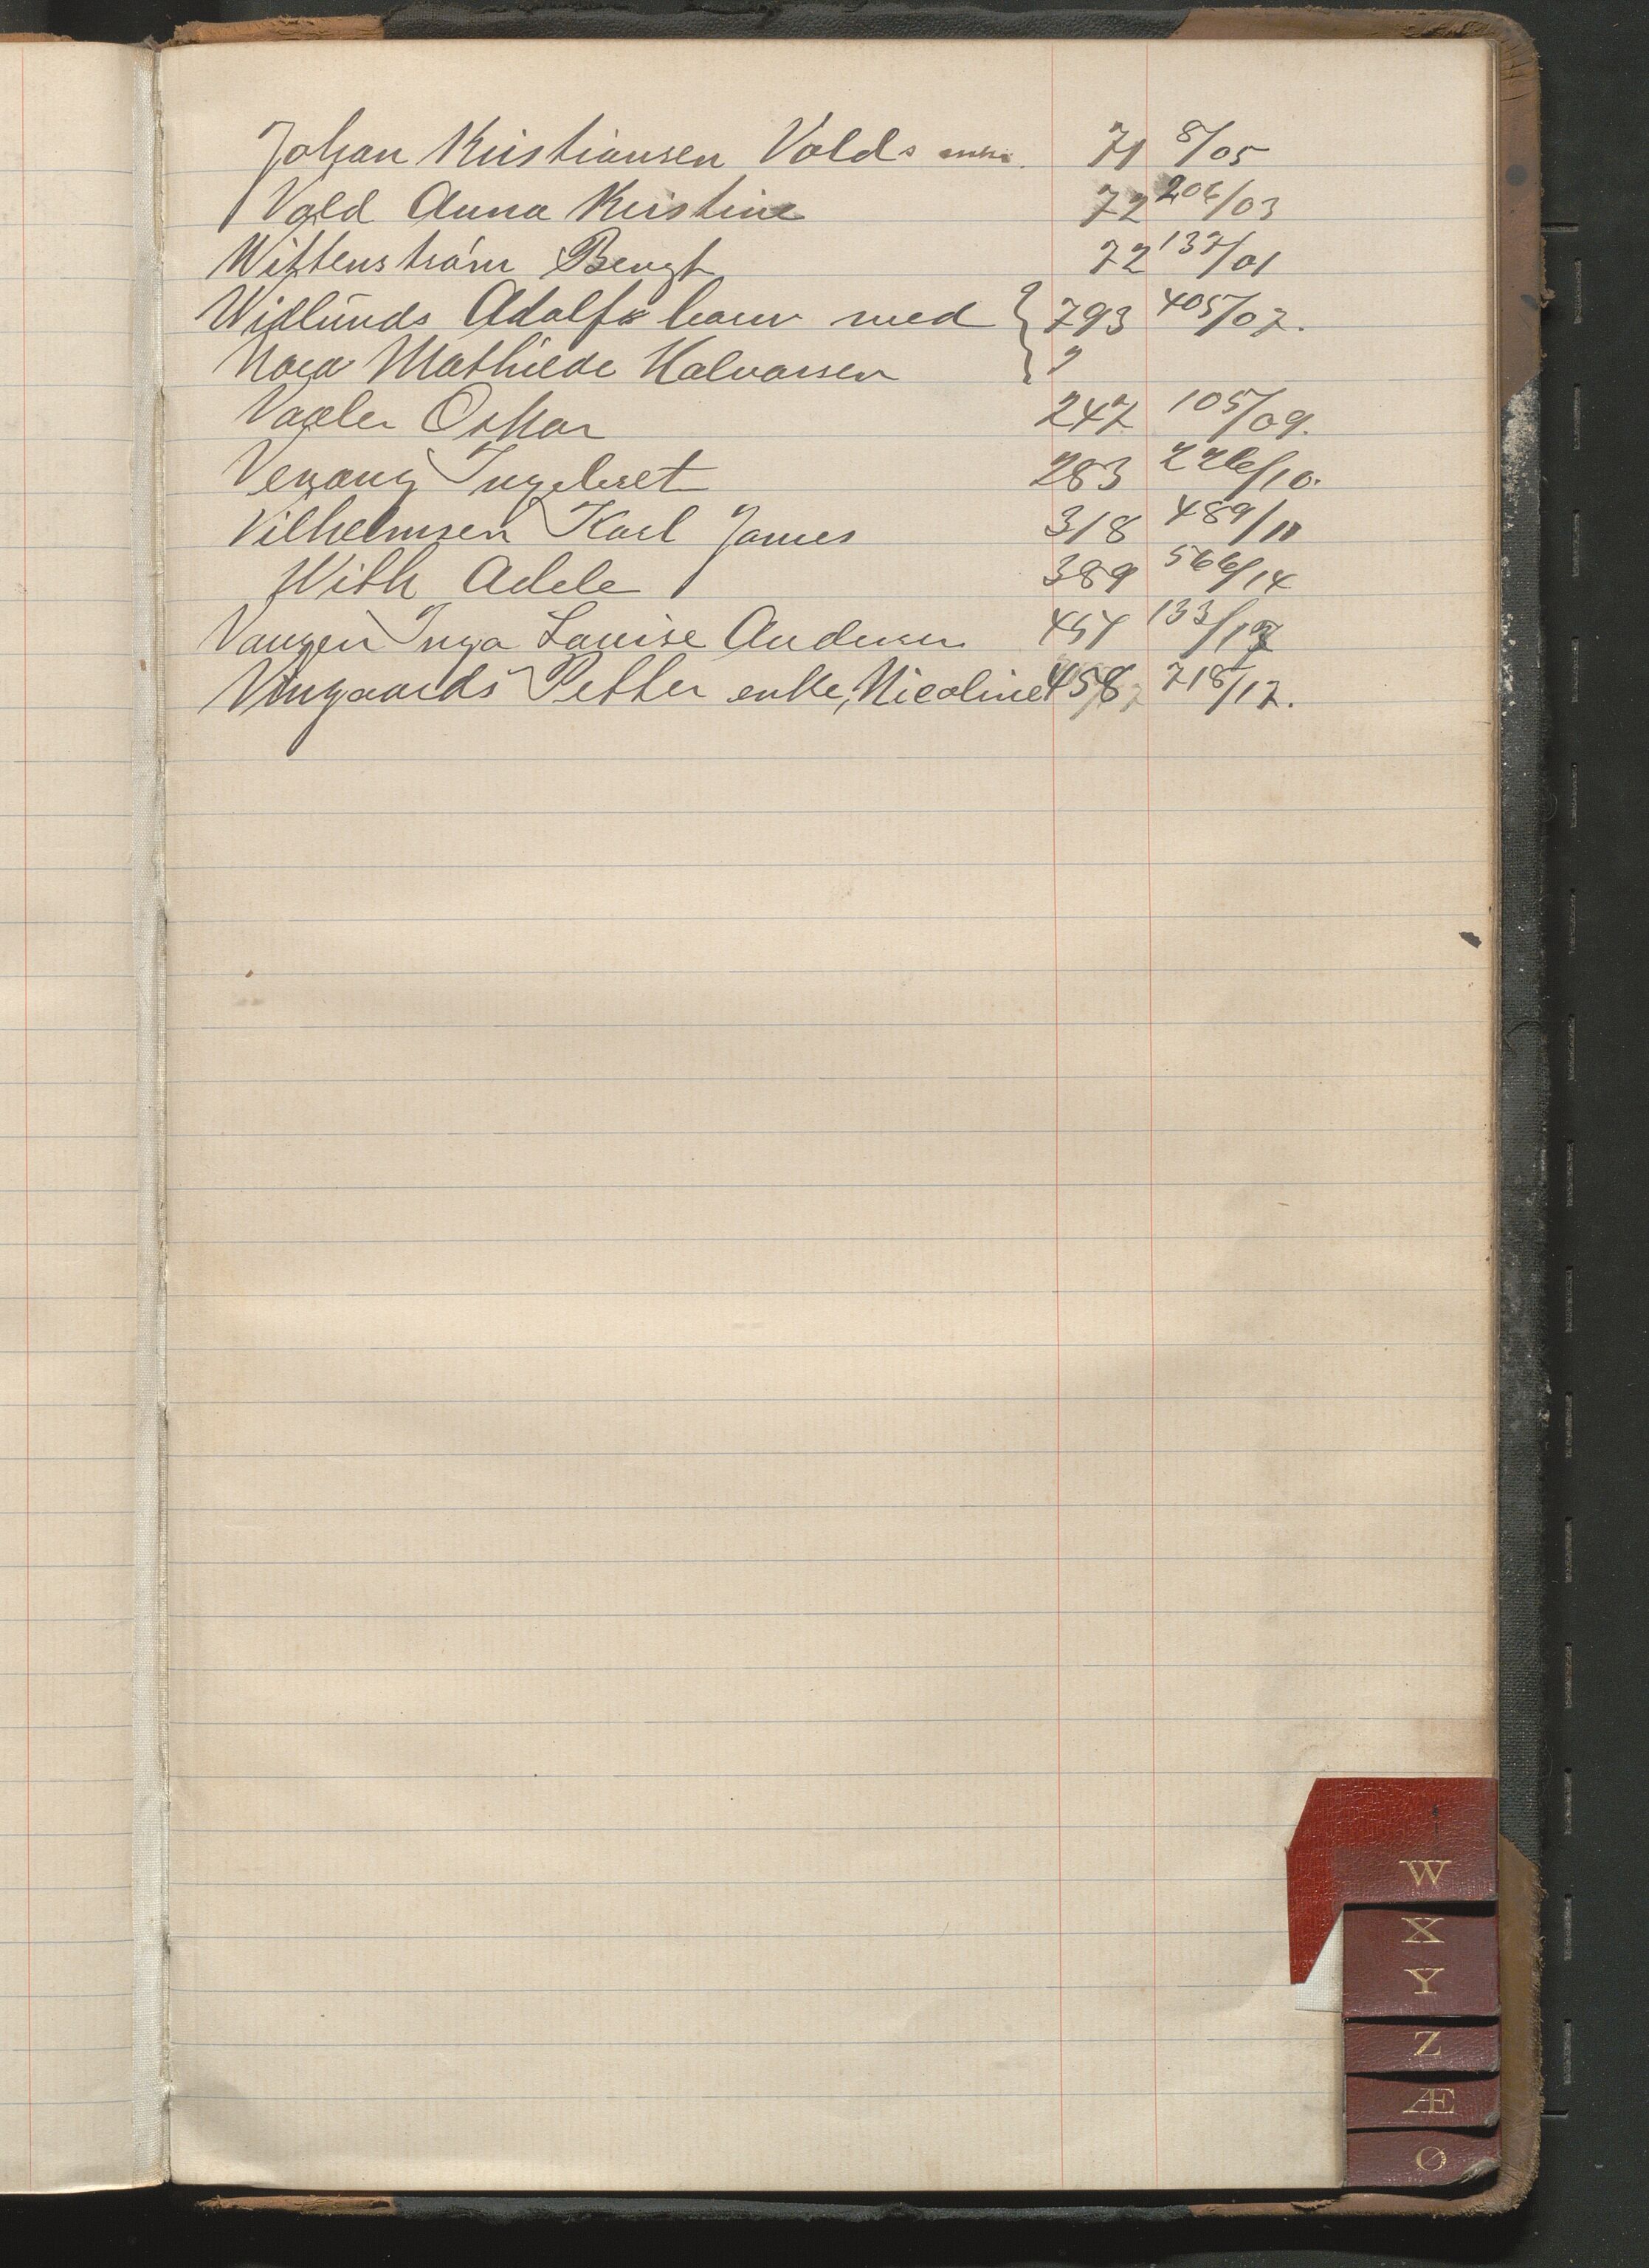 Johan Kristiansen Volds enke. 71 8/05
Vold Anna Kristine 72 206/03
Wittenstrøm Bengt 72 137/01
Widlunds Adolfs barn med } 793 405/07.
Nora Mathilde Halvorsen
Vaaler Oskar 247 105/09.
Venang Ingebret 283 226/10.
Vilhelmsen Karl James 318 489/11
With Adele 389 566/14
Vangen Inga Louise Andersen 454 133/17
Vingaards Petter enke, Nicoline 458 718/17.
W
X
Y
Z
Æ
Ø